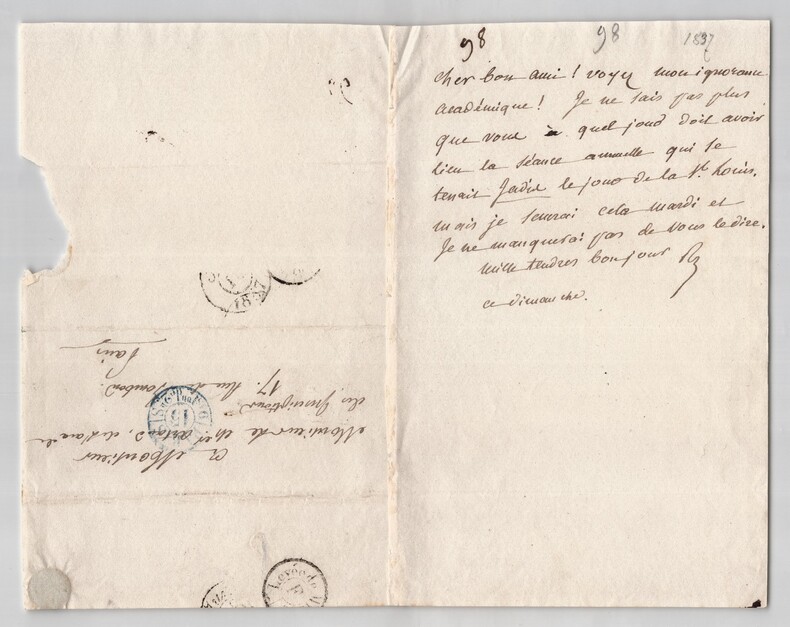 98
98
1837
cher bon ami ! voyez mon ignorance
académique ! Je ne sais pas plus
que vous à quel jour doit avoir
lieu la séance annuelle qui se
tenait Jadis le jour de la St Louis.
mais je saurai cela mardi et
Je ne manquerai pas de vous le dire.
mille tendres bonjour
ce dimanche.
a Monsieur
Monsieur de
des Inscriptions
17. Rue
Paris
1837
Levée du